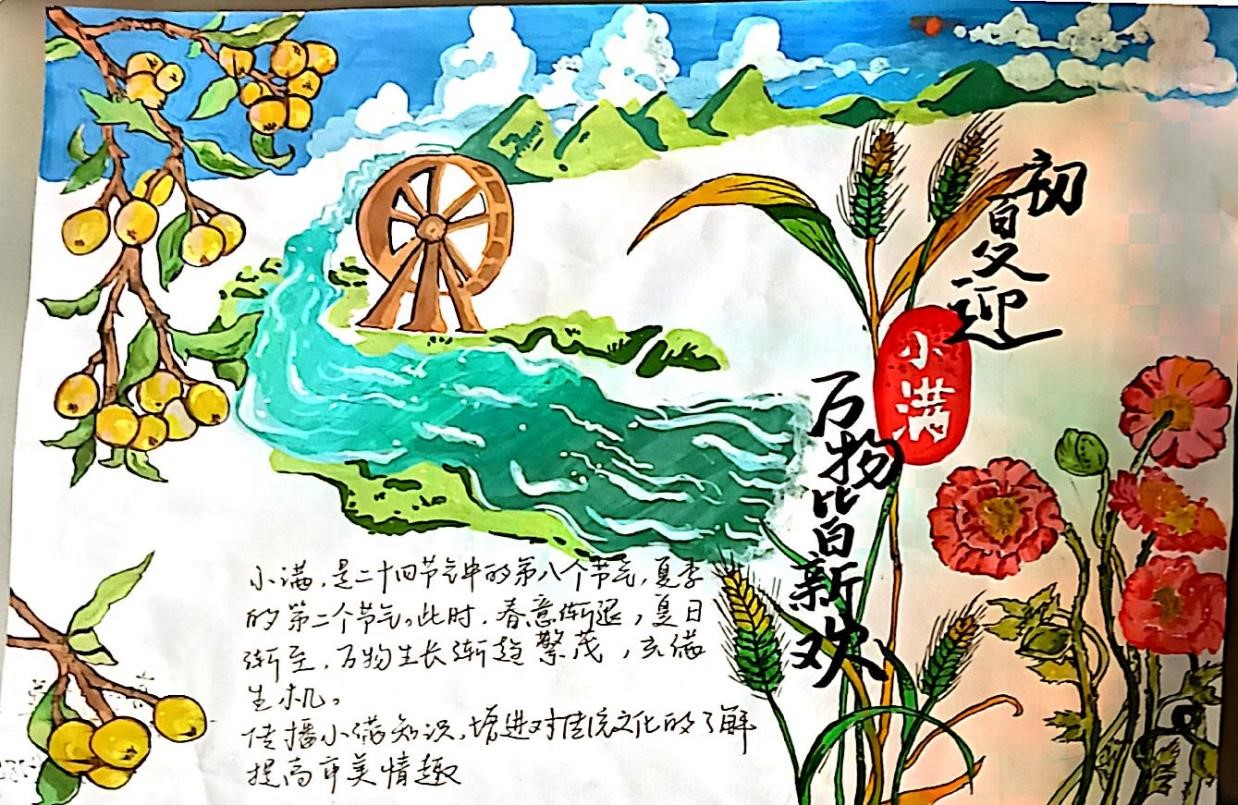 初夏迎
小满
万物皆新欢
小满，是二十四节气中的第八个节气，夏季
的第二个节气。此时，春意渐退，夏日
渐至，万物生长渐趋繁茂，充满
生机。
传播小满知识，增进对传统文化的了解
提高审美情趣